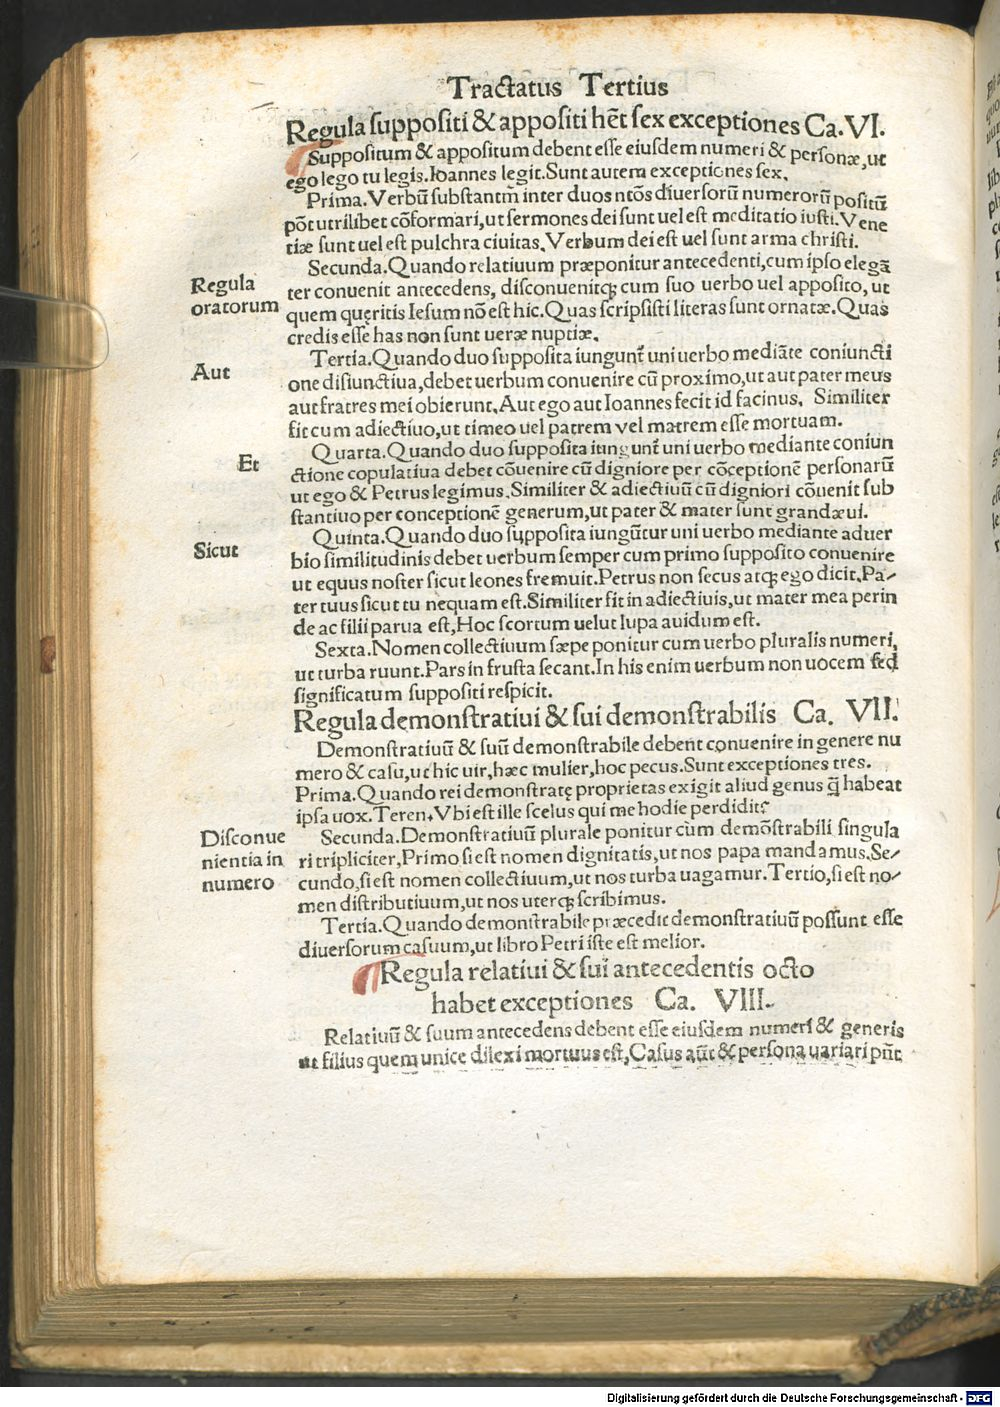 Tractatus Tertius
Regula suppositi & appositi hēt sex exceptiones Ca. VI.
Suppositum & appositum debent esse eiusdem numeri & personæ, ut
ego lego tu legis. Ioannes legit. Sunt autem exceptiones sex.
Prima. Verbū substantm̄ inter duos ntōs diuersorū numerorū positū
pōt utrilibet cōformari, ut sermones dei sunt uel est meditatio iusti. Vene
tiæ sunt uel est pulchra ciuitas. Verbum dei est uel sunt arma christi.
Secunda. Quando relatiuum præponitur antecedenti, cum ipso elegā
Regula
ter conuenit antecedens, disconuenitqꝫ cum suo uerbo uel apposito, ut
oratorum
quem queritis Iesum nō est hic. Quas scripsisti literas sunt ornatæ. Quas
credis esse has non sunt ueræ nuptiæ.
Tertia. Quando duo supposita iungunt̄ uni uerbo mediāte coniuncti
Aut
one disiunctiua, debet uerbum conuenire cū proximo, ut aut pater meus
aut fratres mei obierunt. Aut ego aut Ioannes fecit id facinus. Similiter
fit cum adiectiuo, ut timeo uel patrem vel matrem esse mortuam.
Quarta. Quando duo supposita iungunt̄ uni uerbo mediante coniun
Et
ctione copulatiua debet cōuenire cū digniore per cōceptionē personarū
ut ego & Petrus legimus. Similiter & adiectiuū cū digniori cōuenit sub
stantiuo per conceptionē generum, ut pater & mater sunt grandæui.
Quinta. Quando duo supposita iungūtur uni uerbo mediante aduer
Sicut
bio similitudinis debet uerbum semper cum primo supposito conuenire
ut equus noster sicut leones fremuit. Petrus non secus atqꝫ ego dicit. Pa-
ter tuus sicut tu nequam est. Similiter fit in adiectiuis, ut mater mea perin
de ac filii parua est, Hoc scortum uelut lupa auidum est.
Sexta. Nomen collectiuum sæpe ponitur cum uerbo pluralis numeri,
ut turba ruunt. Pars in frusta secant. In his enim uerbum non uocem sed
significatum suppositi respicit.
Regula demonstratiui & sui demonstrabilis Ca. VII.
Demonstratiuū & suū demonstrabile debent conuenire in genere nu
mero & casu, ut hic uir, hæc mulier, hoc pecus. Sunt exceptiones tres.
Prima. Quando rei demonstratę proprietas exigit aliud genus q̄ habeat
ipsa uox. Teren. Vbi est ille scelus qui me hodie perdidit?
Disconue
Secunda. Demonstratiuū plurale ponitur cum demōstrabili singula
nientia in
ri tripliciter, Primo si est nomen dignitatis, ut nos papa mandamus. Se-
numero
cundo, si est nomen collectiuum, ut nos turba uagamur. Tertio, si est no-
men distributiuum, ut nos uterqꝫ scribimus.
Tertia. Quando demonstrabile præcedit demonstratiuū possunt esse
diuersorum casuum, ut libro Petri iste est melior.
Regula relatiui & sui antecedentis octo
habet exceptiones Ca. VIII.
Relatiuū & suum antecedens debent esse eiusdem numeri & generis
ut filius quem unice dilexi mortuus est, Casus aūt & persona uariari pn̄t
Digitalisierung gefördert durch die Deutsche Forschungsgemeinschaft - DFG